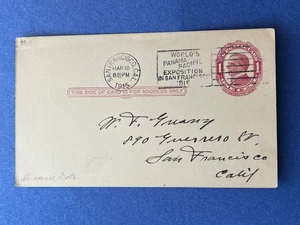 SAN FRANCISCO, CAL.
MAR 18
8 PM
1915
WORLD'S
PANAMA PACIFIC
EXPOSITION
IN SAN FRANCISCO
1915
THIS SIDE OF CARD IS FOR ADDRESS ONLY
W. F.
890 Guerrero St,
San Francisco
Calif